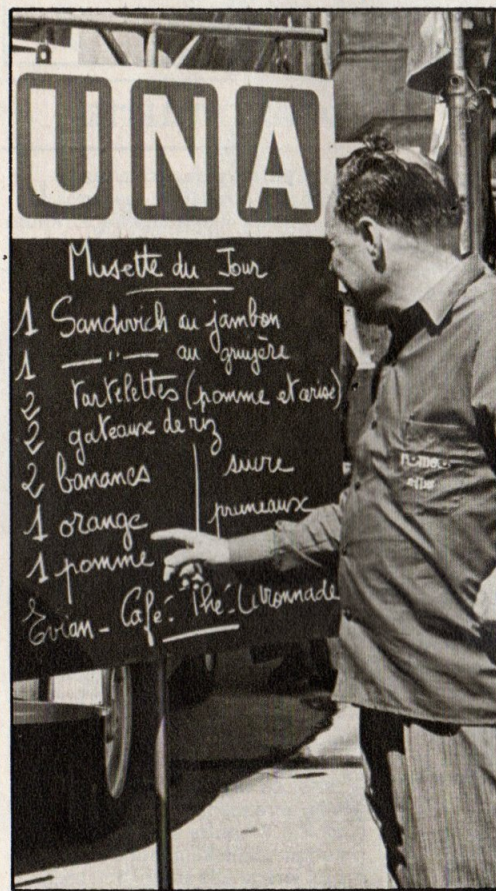 UNA
Musette du Jour
1 Sandwich au jambon
1 —"— au gruyère
2 tartelettes (pomme et cerise)
2 gateaux de riz
2 bananes | sucre
1 orange | pruneaux
1 pomme
Evian - Café - Thé - Citronnade